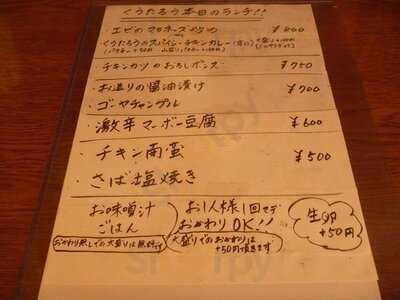 くうたろう本日のランチ!!
・エビのマヨネーズ炒め ¥800
・くうたろうのスパイシーチキンカレー
・チキンカツのおろしポンズ ¥750
・お造りの醤油漬け ¥700
・ゴーヤチャンプル
・激辛マーボー豆腐 ¥600
・チキン南蛮 ¥500
・さば塩焼き
お味噌汁
ごはん
おかわり無しでの大盛りは無料です
お1人様1回まで
おかわりOK!!
大盛りでのおかわりは
+50円頂きます
生卵
+50円